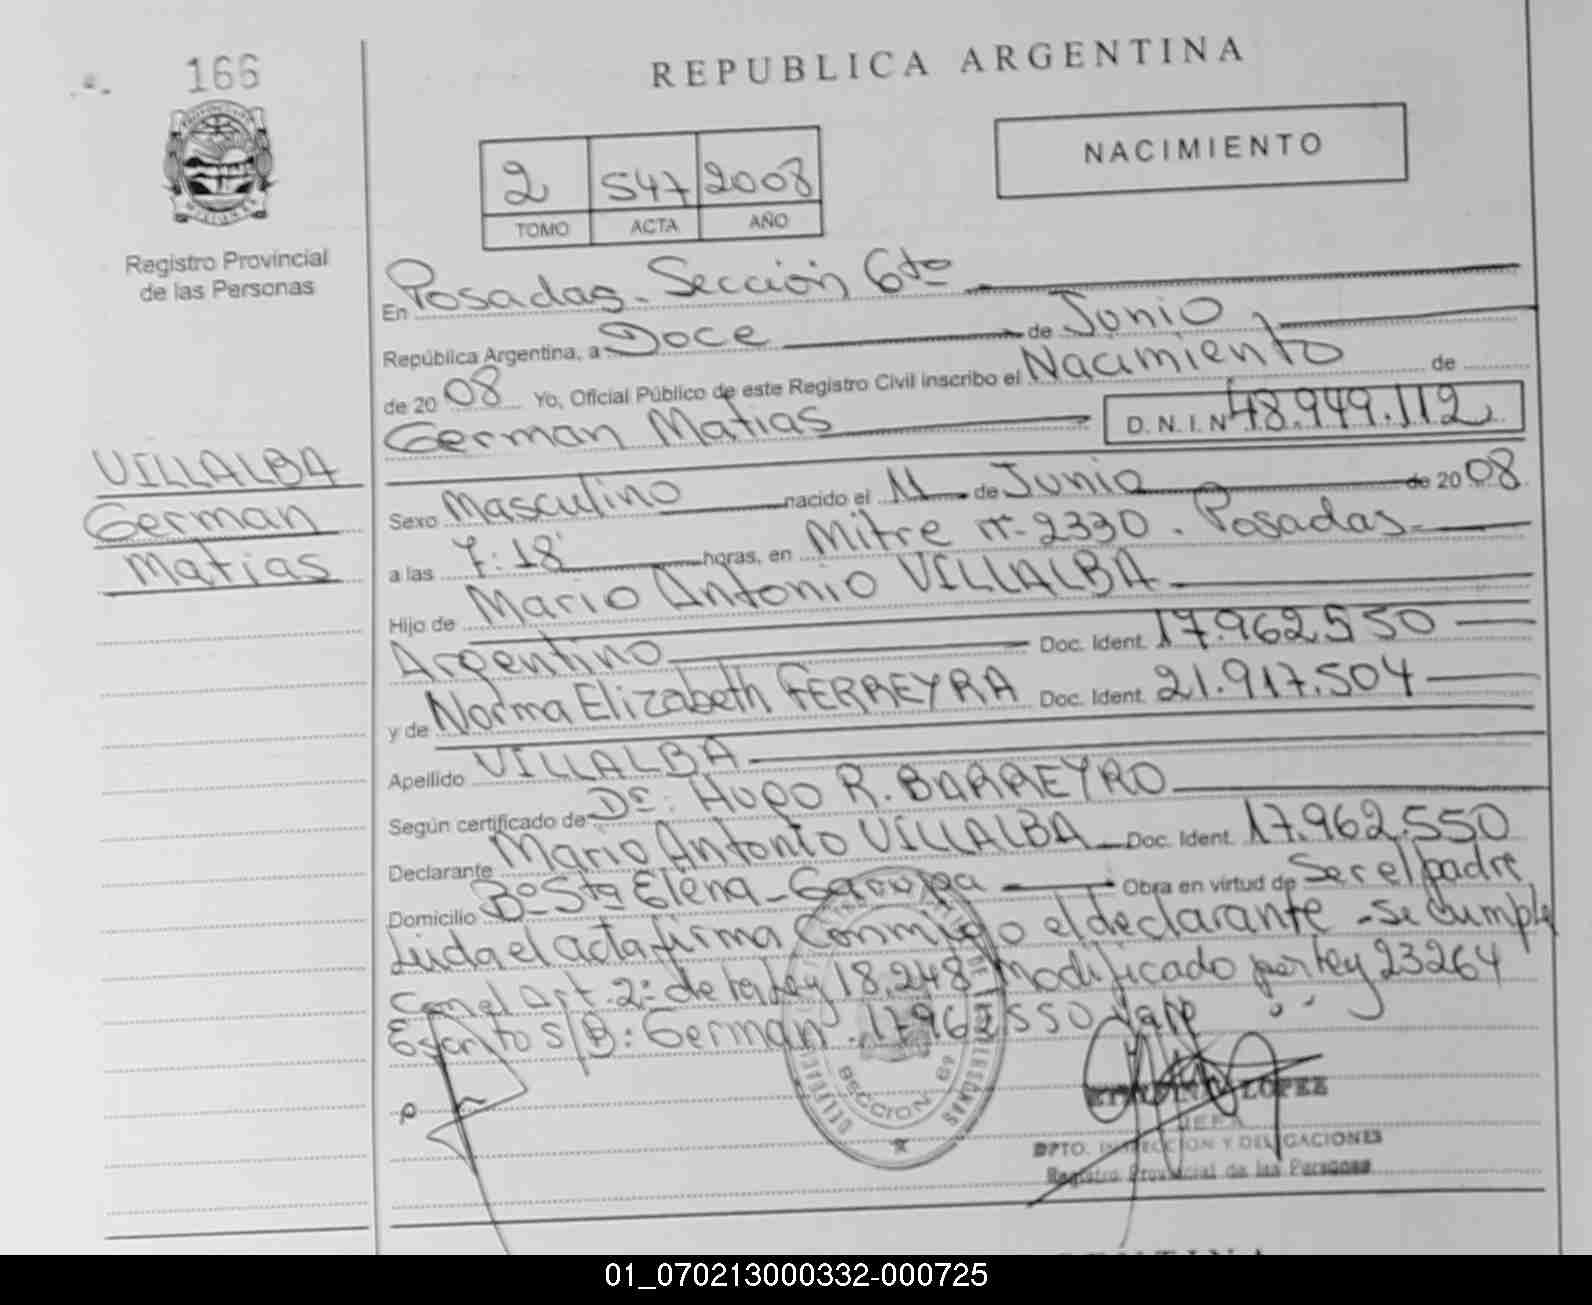 166
REPUBLICA ARGENTINA
NACIMIENTO
2 547 2008
TOMO ACTA AÑO
Registro Provincial
de las Personas
En Posadas - Sección 6ta
República Argentina, a Doce de Junio
de 2008 Yo, Oficial Público de este Registro Civil inscribo el Nacimiento de
German Matias D.N.I.Nº 48.949.112
VILLALBA
German
Matias
Sexo Masculino nacido el 11 de Junio de 2008
a las 7:18 horas, en Mitre nº 2330 . Posadas
Hijo de Mario Antonio VILLALBA
Argentino Doc. Ident. 17.962.550
y de Norma Elizabeth FERREYRA Doc. Ident. 21.917.504
Apellido VILLALBA
Según certificado de Dr: Hugo R. BARREYRO
Declarante Mario Antonio VILLALBA Doc. Ident. 17.962.550
Domicilio Bº Sta Elena - Garupa Obra en virtud de Ser el padre
Leida el acta firma Conmigo el declarante - Se cumple
Con el Art. 2º de la Ley 18.248 Modificado por ley 23264
Escrito s/B: German . 17962550 Vale
SECCION 6ª
LOPEZ
JEFA
DPTO. INSPECCION Y DELEGACIONES
Registro Provincial de las Personas
01_070213000332-000725